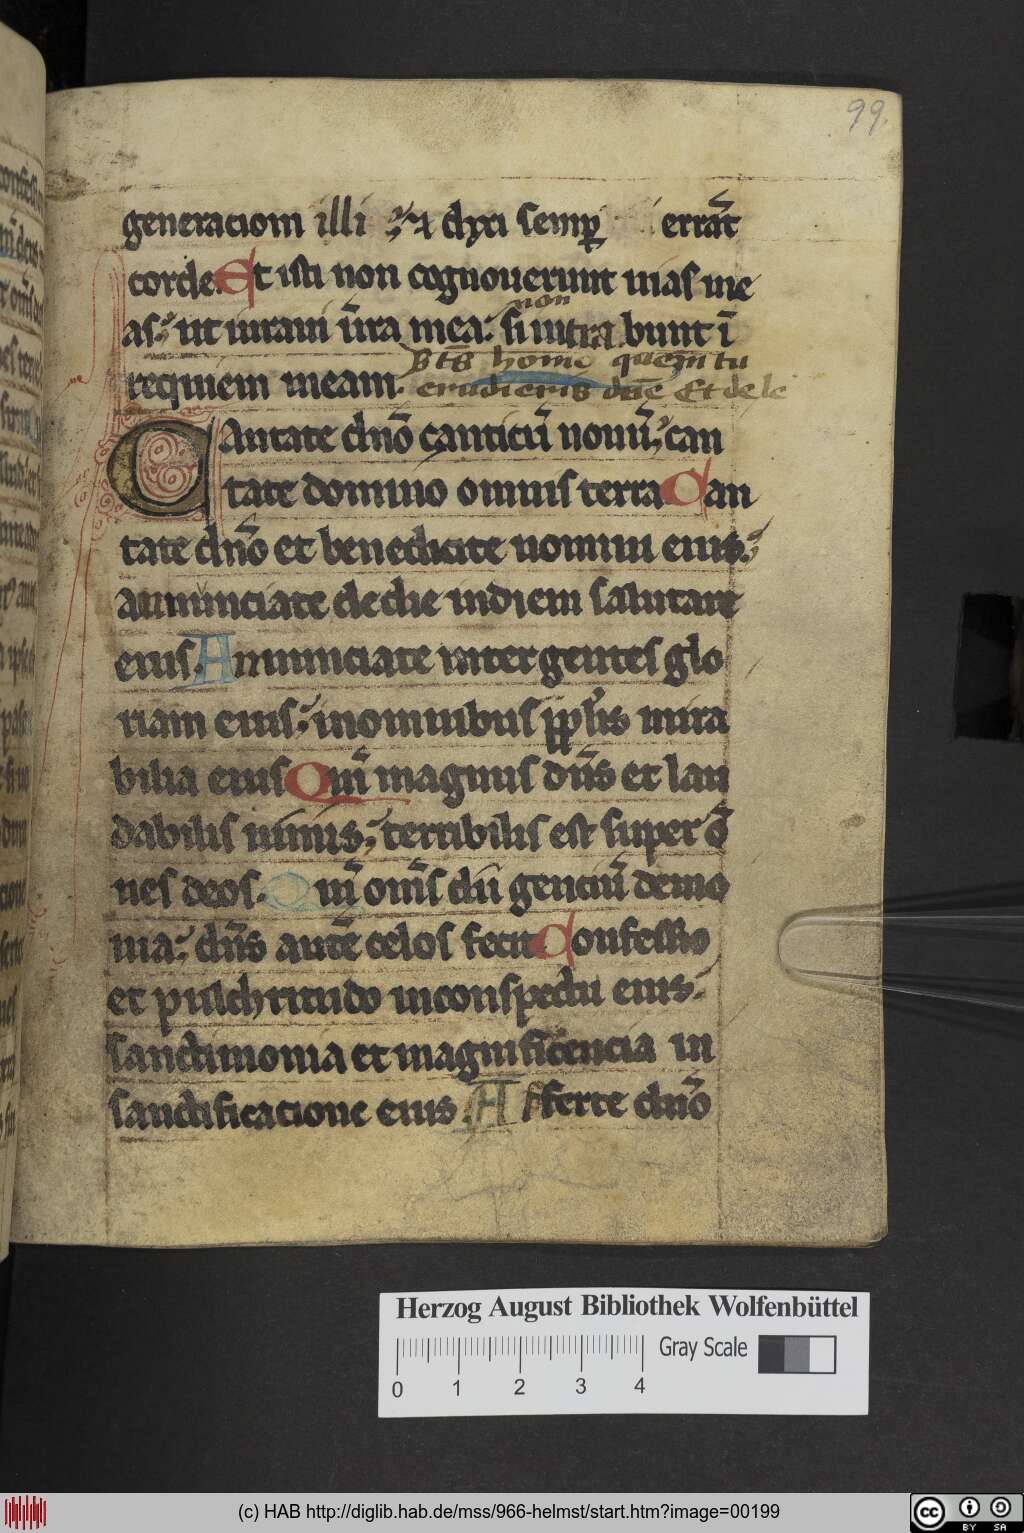 99.
generaciom illi ⁊ dyxi semꝑ errāt
corde. Et isti non cognouerunt uias me
non
as. ut iuraui īra mea. si intra bunt ī
requiem meam. Bt͡s homo quem tu
erudieris dn̄e Et de le
CAntate dn̄o canticū nouū. can
tate domino omnis terra Can
tate dn̄o et benedicite nomini eius.
annunciate de die indiem salutare
eius. Annunciate inter gentes glo
riam eius. inomnibus pplis mira
bilia eius Qm̄ magnus dn̄s et lau
dabilis nimis. terribilis est super ō
nes deos. Qm̄ om̄s dii genciū demo
nia. dn̄s autē celos fecit Confessio
et pulchritudo inconspectu eius.
sanctimonia et magnificencia in
sanctificacione eius. Afferte dn̄o
Herzog August Bibliothek Wolfenbüttel
Gray Scale
0 1 2 3 4
(c) HAB http://diglib.hab.de/mss/966-helmst/start.htm?image=00199
cc BY SA